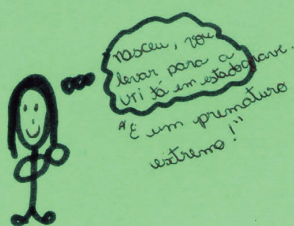 nasceu, vou
levar para a
UTI tá em estado grave.
"É um prematuro
extremo!"